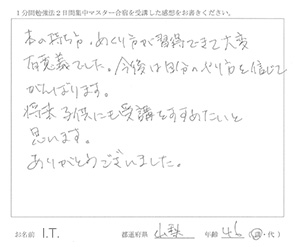 1分間勉強法2日間集中マスター合宿を受講した感想をお書きください。
本の持ち方、めくり方が習得できて大変
有意義でした。今後は自分のやり方を信じて
がんばります。
将来子供にも受講をすすめたいと
思います。
ありがとうございました。
お名前 I.T. 都道府県 山梨 年齢 46 (歳・代)